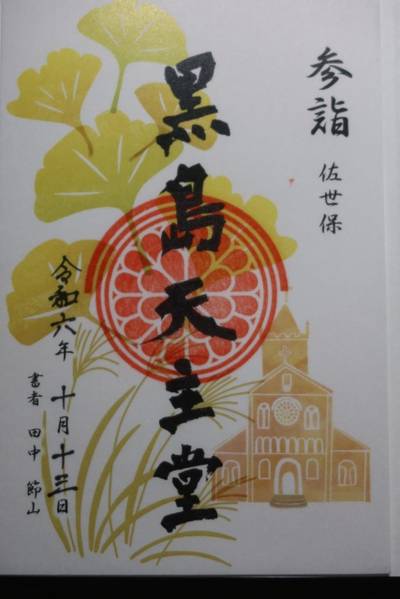 参詣 佐世保
黒島天主堂
令和六年 十月十三日
書者 田中 節山